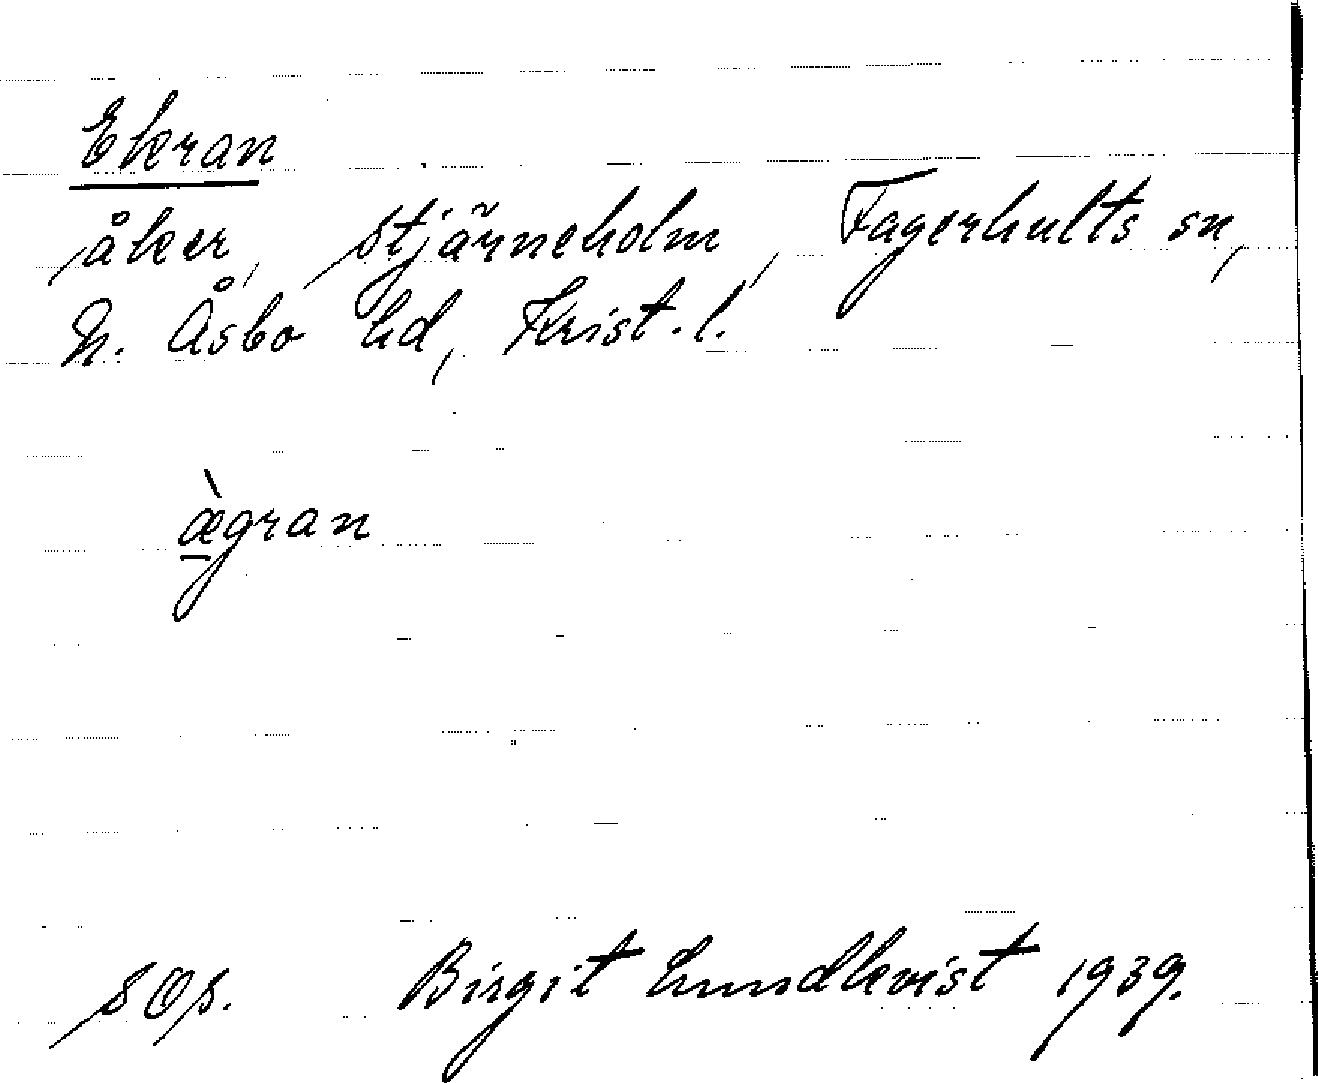 Ekran
åker, Stjärneholm, Fagerhults sn,
N. Åsbo hd, Krist. l.
æ̲̀gran
SOs. Birgit Lundkvist 1939.